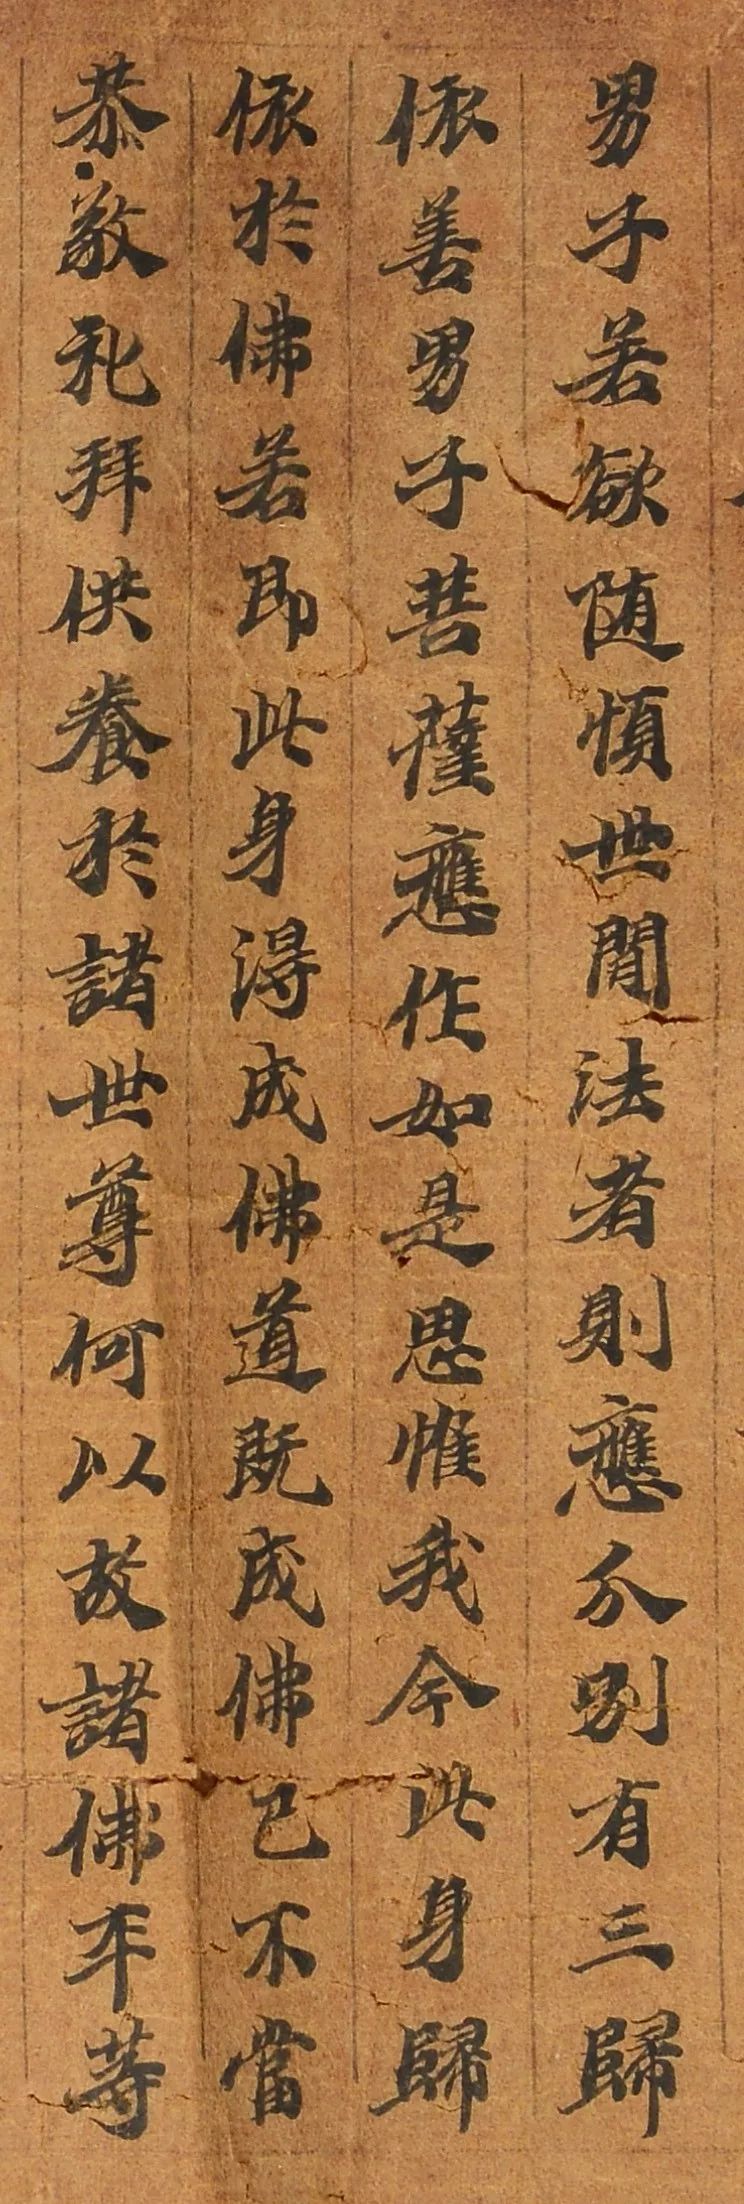 男子若欲随順世間法者則應分別有三歸
依善男子菩薩應作如是思惟我今此身歸
依於佛若即此身得成佛道既成佛已不當
恭敬礼拜供養於諸世尊何以故諸佛平等